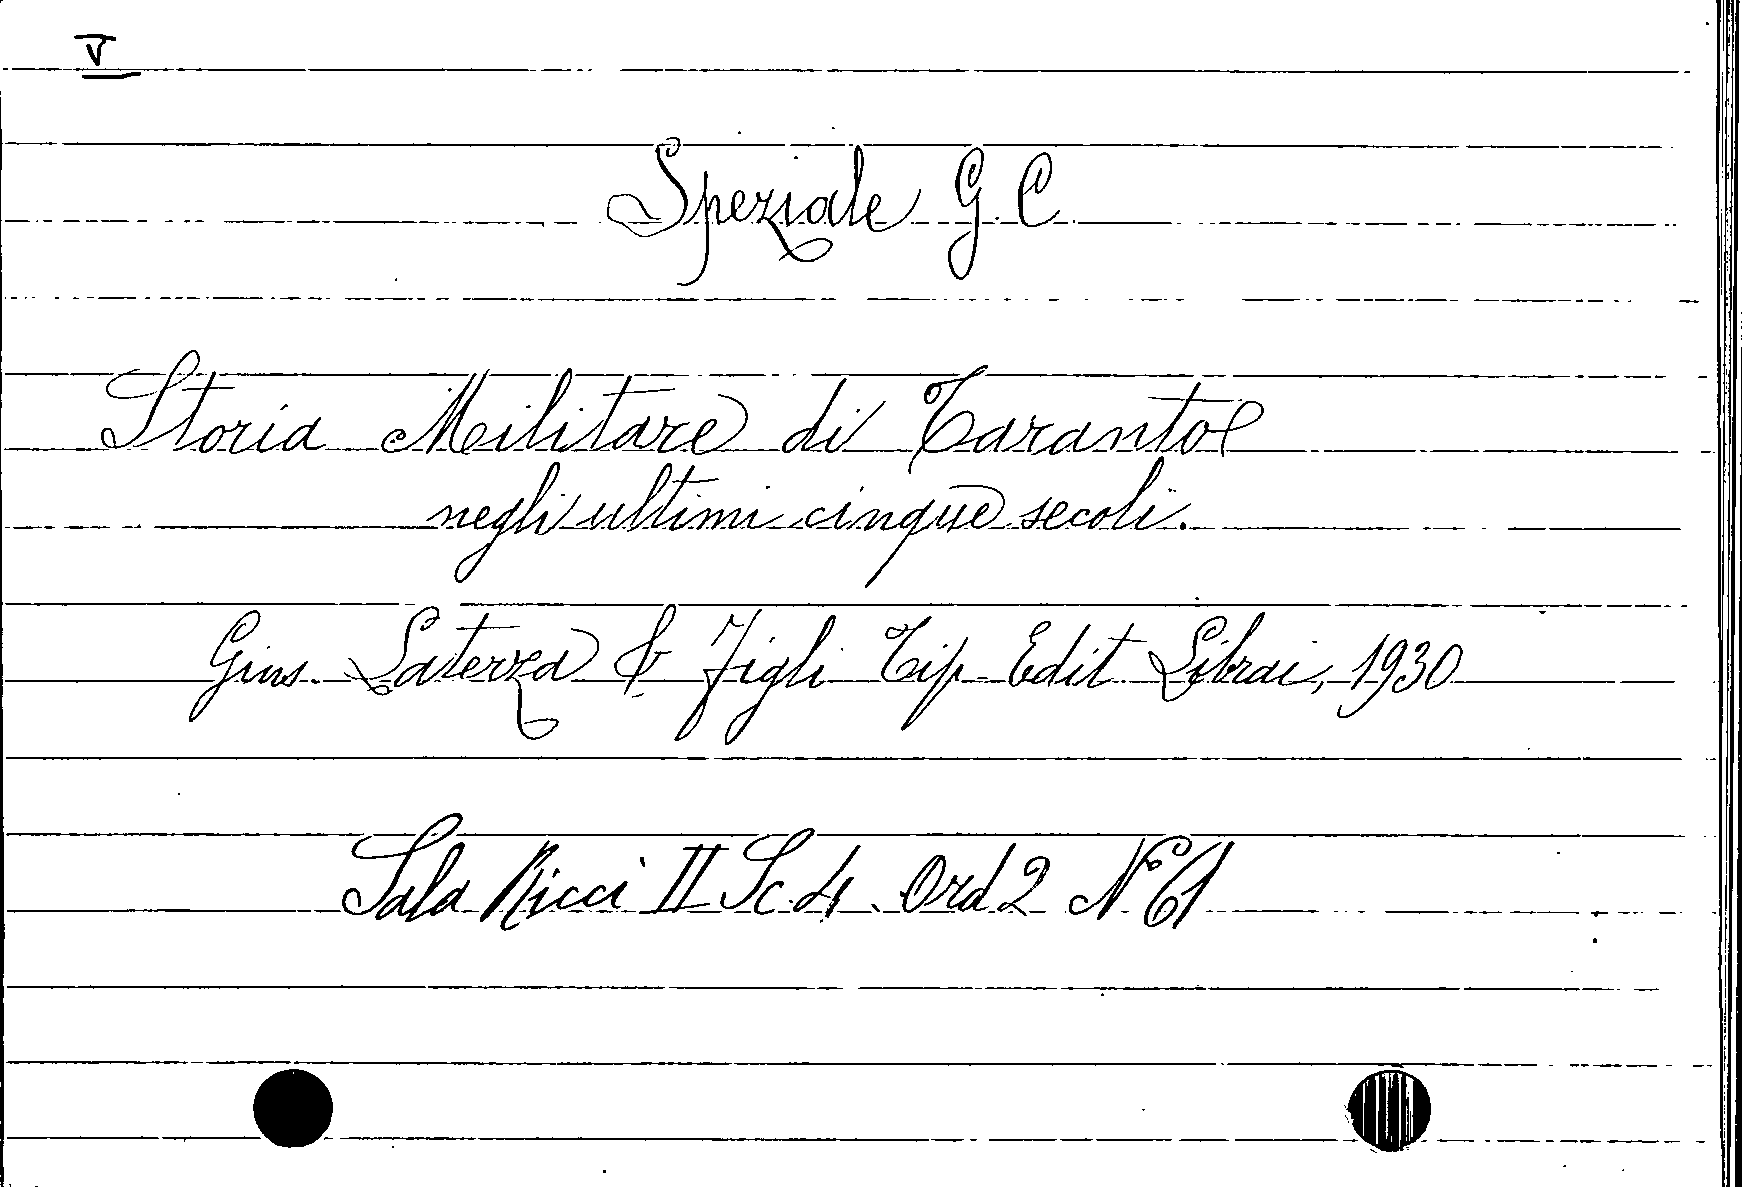 V
Speziale G. C.
Storia Militare di Taranto
negli ultimi cinque secoli.
Gius. Laterza & Figli Tip. Edit Librai, 1930
Sala Ricci II Sc. 4. Ord 2 N° 61